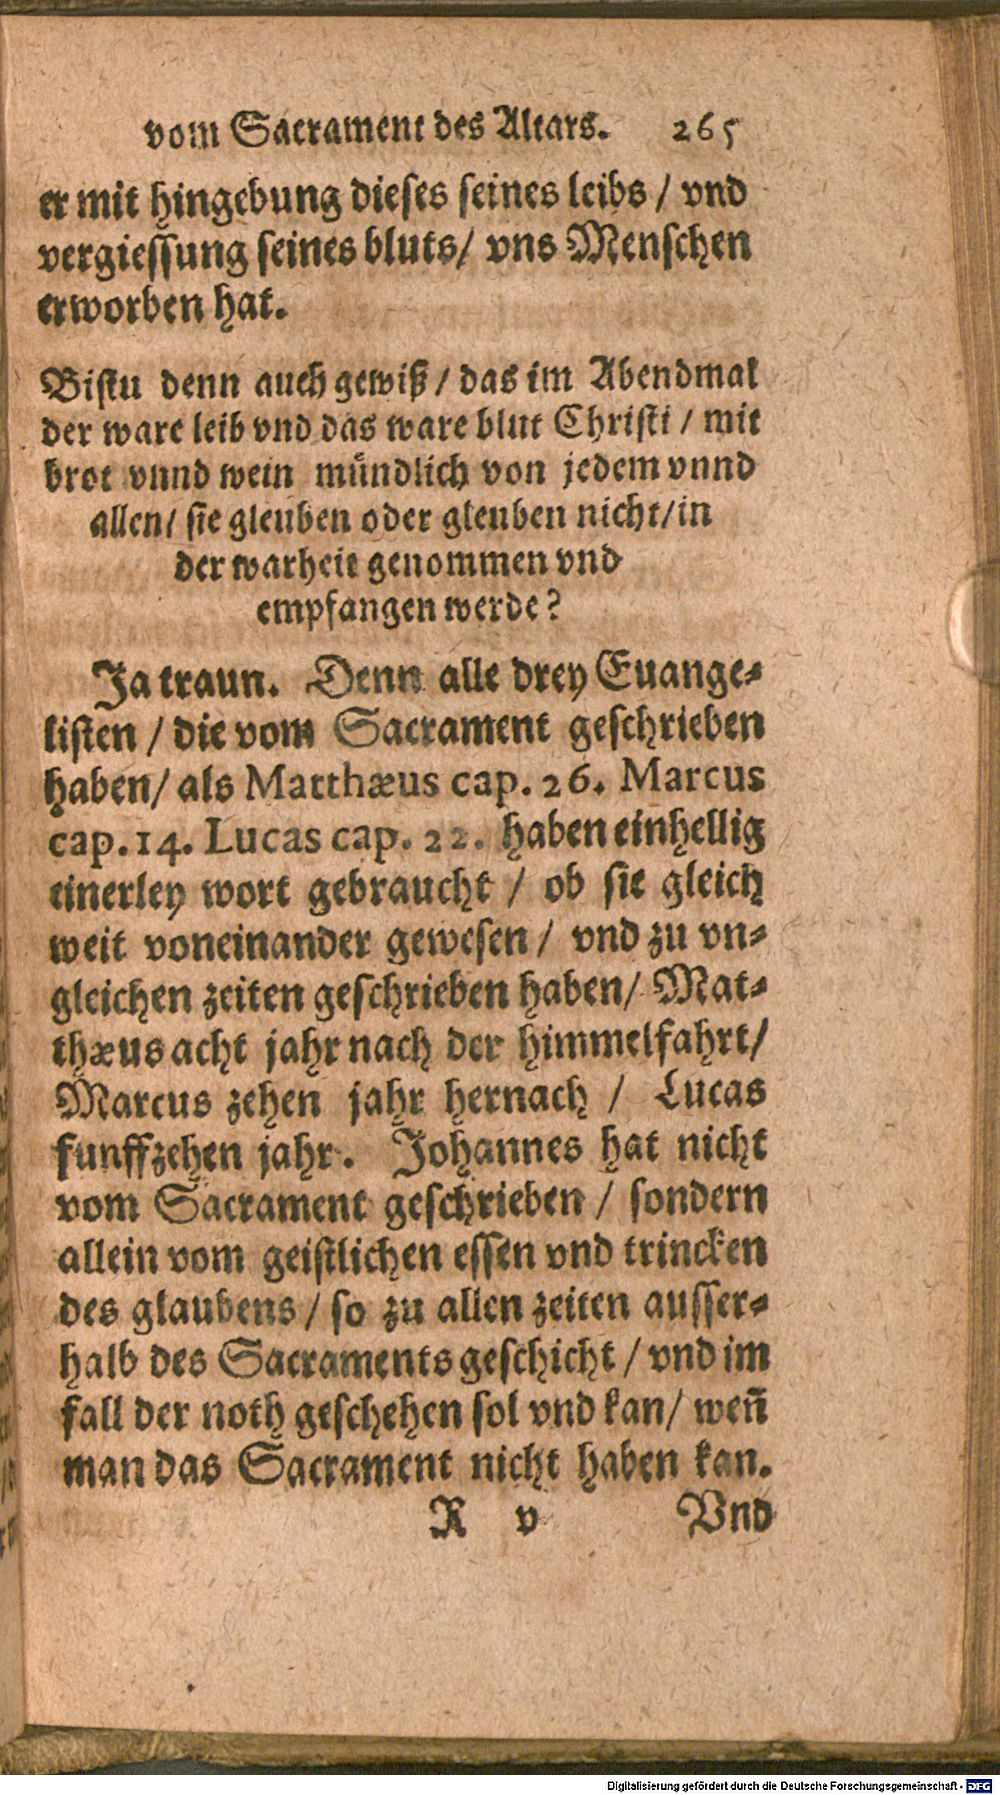 vom Sacrament des Altars. 265
er mit hingebung dieses seines leibs / vnd
vergiessung seines bluts / vns Menschen
erworben hat.
Bistu denn auch gewiß / das im Abendmal
der ware leib vnd das ware blut Christi / mit
brot vnnd wein mündlich von jedem vnnd
allen / sie gleuben oder gleuben nicht / in
der warheit genommen vnd
empfangen werde?
Ja traun. Denn alle drey Euange-
listen / die vom Sacrament geschrieben
haben / als Matthæus cap. 26. Marcus
cap. 14. Lucas cap. 22. haben einhellig
einerley wort gebraucht / ob sie gleich
weit voneinander gewesen / vnd zu vn-
gleichen zeiten geschrieben haben / Mat-
thæus acht jahr nach der himmelfahrt /
Marcus zehen jahr hernach / Lucas
funffzehen jahr. Johannes hat nicht
vom Sacrament geschrieben / sondern
allein vom geistlichen essen vnd trincken
des glaubens / so zu allen zeiten ausser-
halb des Sacraments geschicht / vnd im
fall der noth geschehen sol vnd kan / weñ
man das Sacrament nicht haben kan.
R v Vnd
Digitalisierung gefördert durch die Deutsche Forschungsgemeinschaft - DFG